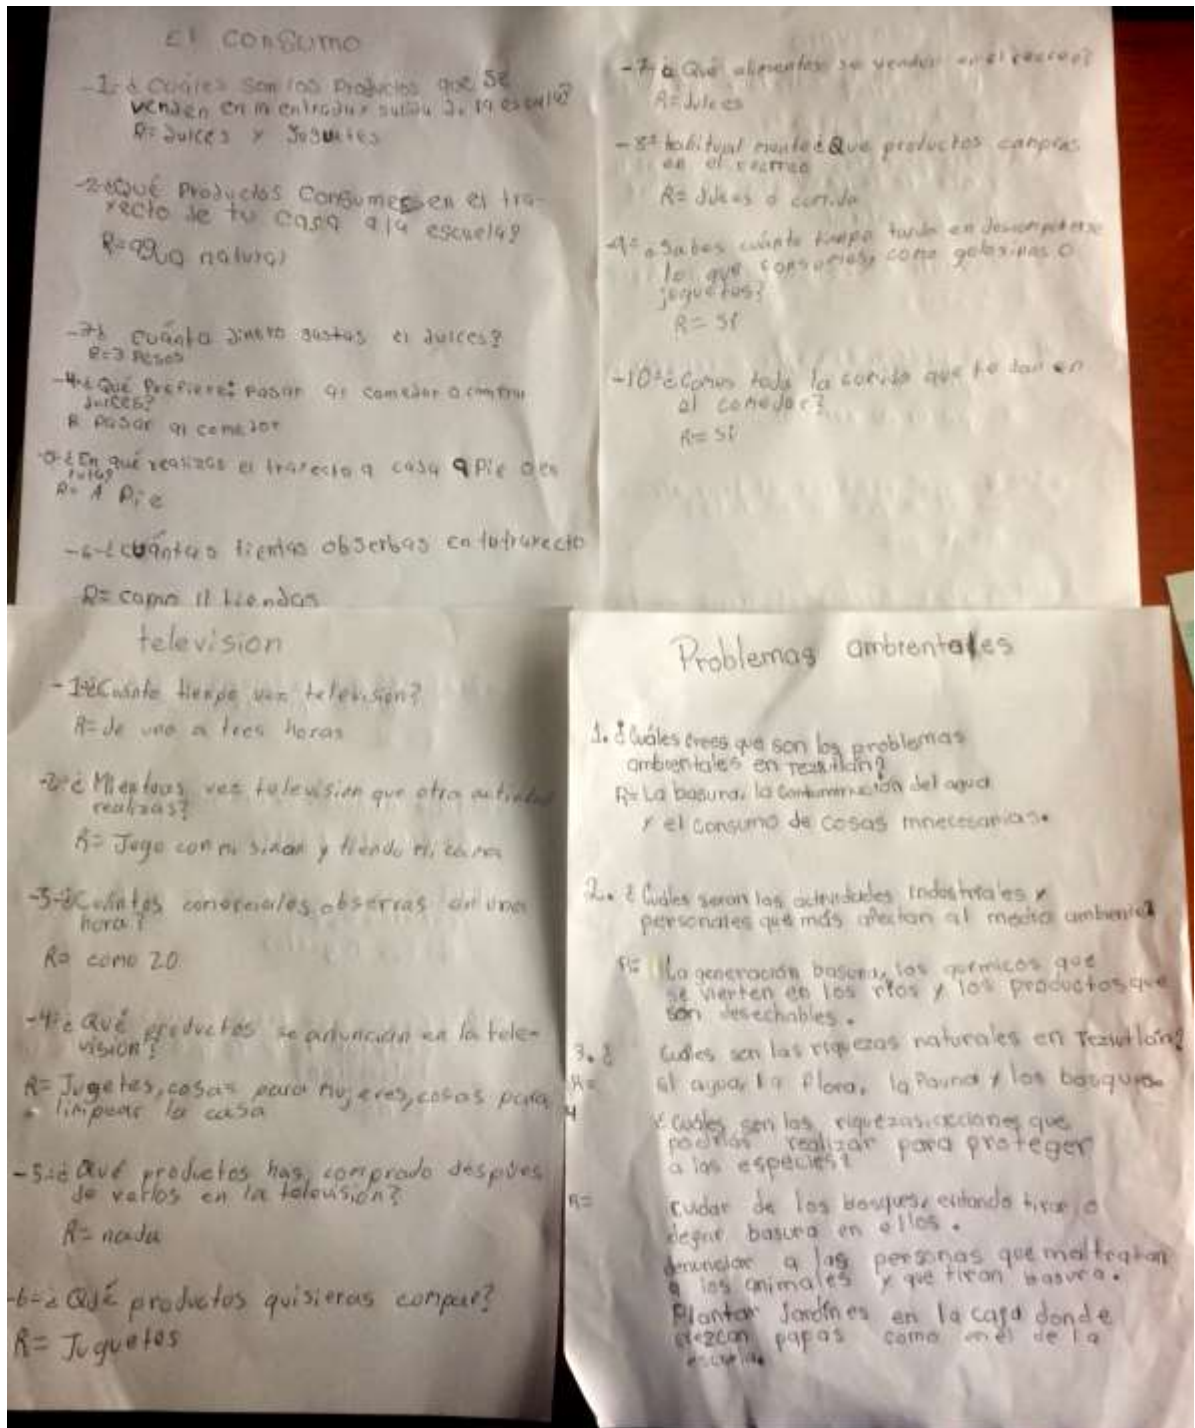 El consumo
-1-¿ Cuáles son los productos que se
venden en la entrada y salida de la escuela?
R= dulces y juguetes
-2-¿Qué Productos Consumes en el tra-
yecto de tu casa a la escuela?
R= agua natural
cuánto dinero gastas en dulces?
R=3 Pesos
-4-¿Qué Prefieres Pasar al comedor o comprar
dulces?
R Pasar al comedor
¿En qué realizas el trayecto a casa a Pie o en
R= A Pie
-6-¿cuántas tiendas obserbas en tu trayecto
R= como 11 tiendas
-7-¿Qué alimentos se venden en el recreo?
R= dulces
-8- habitual mente ¿Que productos compras
en el recreo
R= dulces o comida
¿Sabes cuánto tiempo tarda en descomponerse
lo que consumes, como golosinas o
juguetes?
R= SÍ
-10-¿Comes toda la comida que te dan en
el comedor?
R= SÍ
televisión
-1-¿Cuánto tiempo vez televisión?
R= de una a tres horas
-2-¿ Mientras vez televisión que otra actividad
realizas?
R= Jugo con mi y tiendo mi cama
-3-¿Cuántos comerciales observas en una
hora?
R= como 20
-4-¿ Qué productos se anuncian en la tele-
visión?
R= Jugetes, cosas para mujeres, cosas para
limpear la casa
-5-¿ Qué productos has comprado despúes
de verlos en la televisión?
R= nada
-6-¿ Qué productos quisieras comprar?
R= Juguetes
Problemas ambientales
1. ¿Cuáles crees que son los problemas
ambientales en Teziutlán?
R= La basura, la contaminación del agua
y el consumo de cosas innecesarias.
2. ¿ Cuáles seran las actividades industriales y
personales que más afectan al medio ambiente?
R= La generación basura, los químicos que
se vierten en los ríos y los productos que
son desechables.
3. ¿ Cuáles son las riquezas naturales en Teziutlán?
R= el agua, la Flora, la Fauna y los bosques.
4 ¿ Cuáles son las riquezas acciones que
podrías realizar para proteger
a las especies?
R= cuidar de los bosques, evitando tirar o
dejar basura en ellos.
denunciar a las personas que maltratan
a los animales y que tiran basura.
Plantar Jardines en la casa donde
crezcan papas como en el de la
escuela.